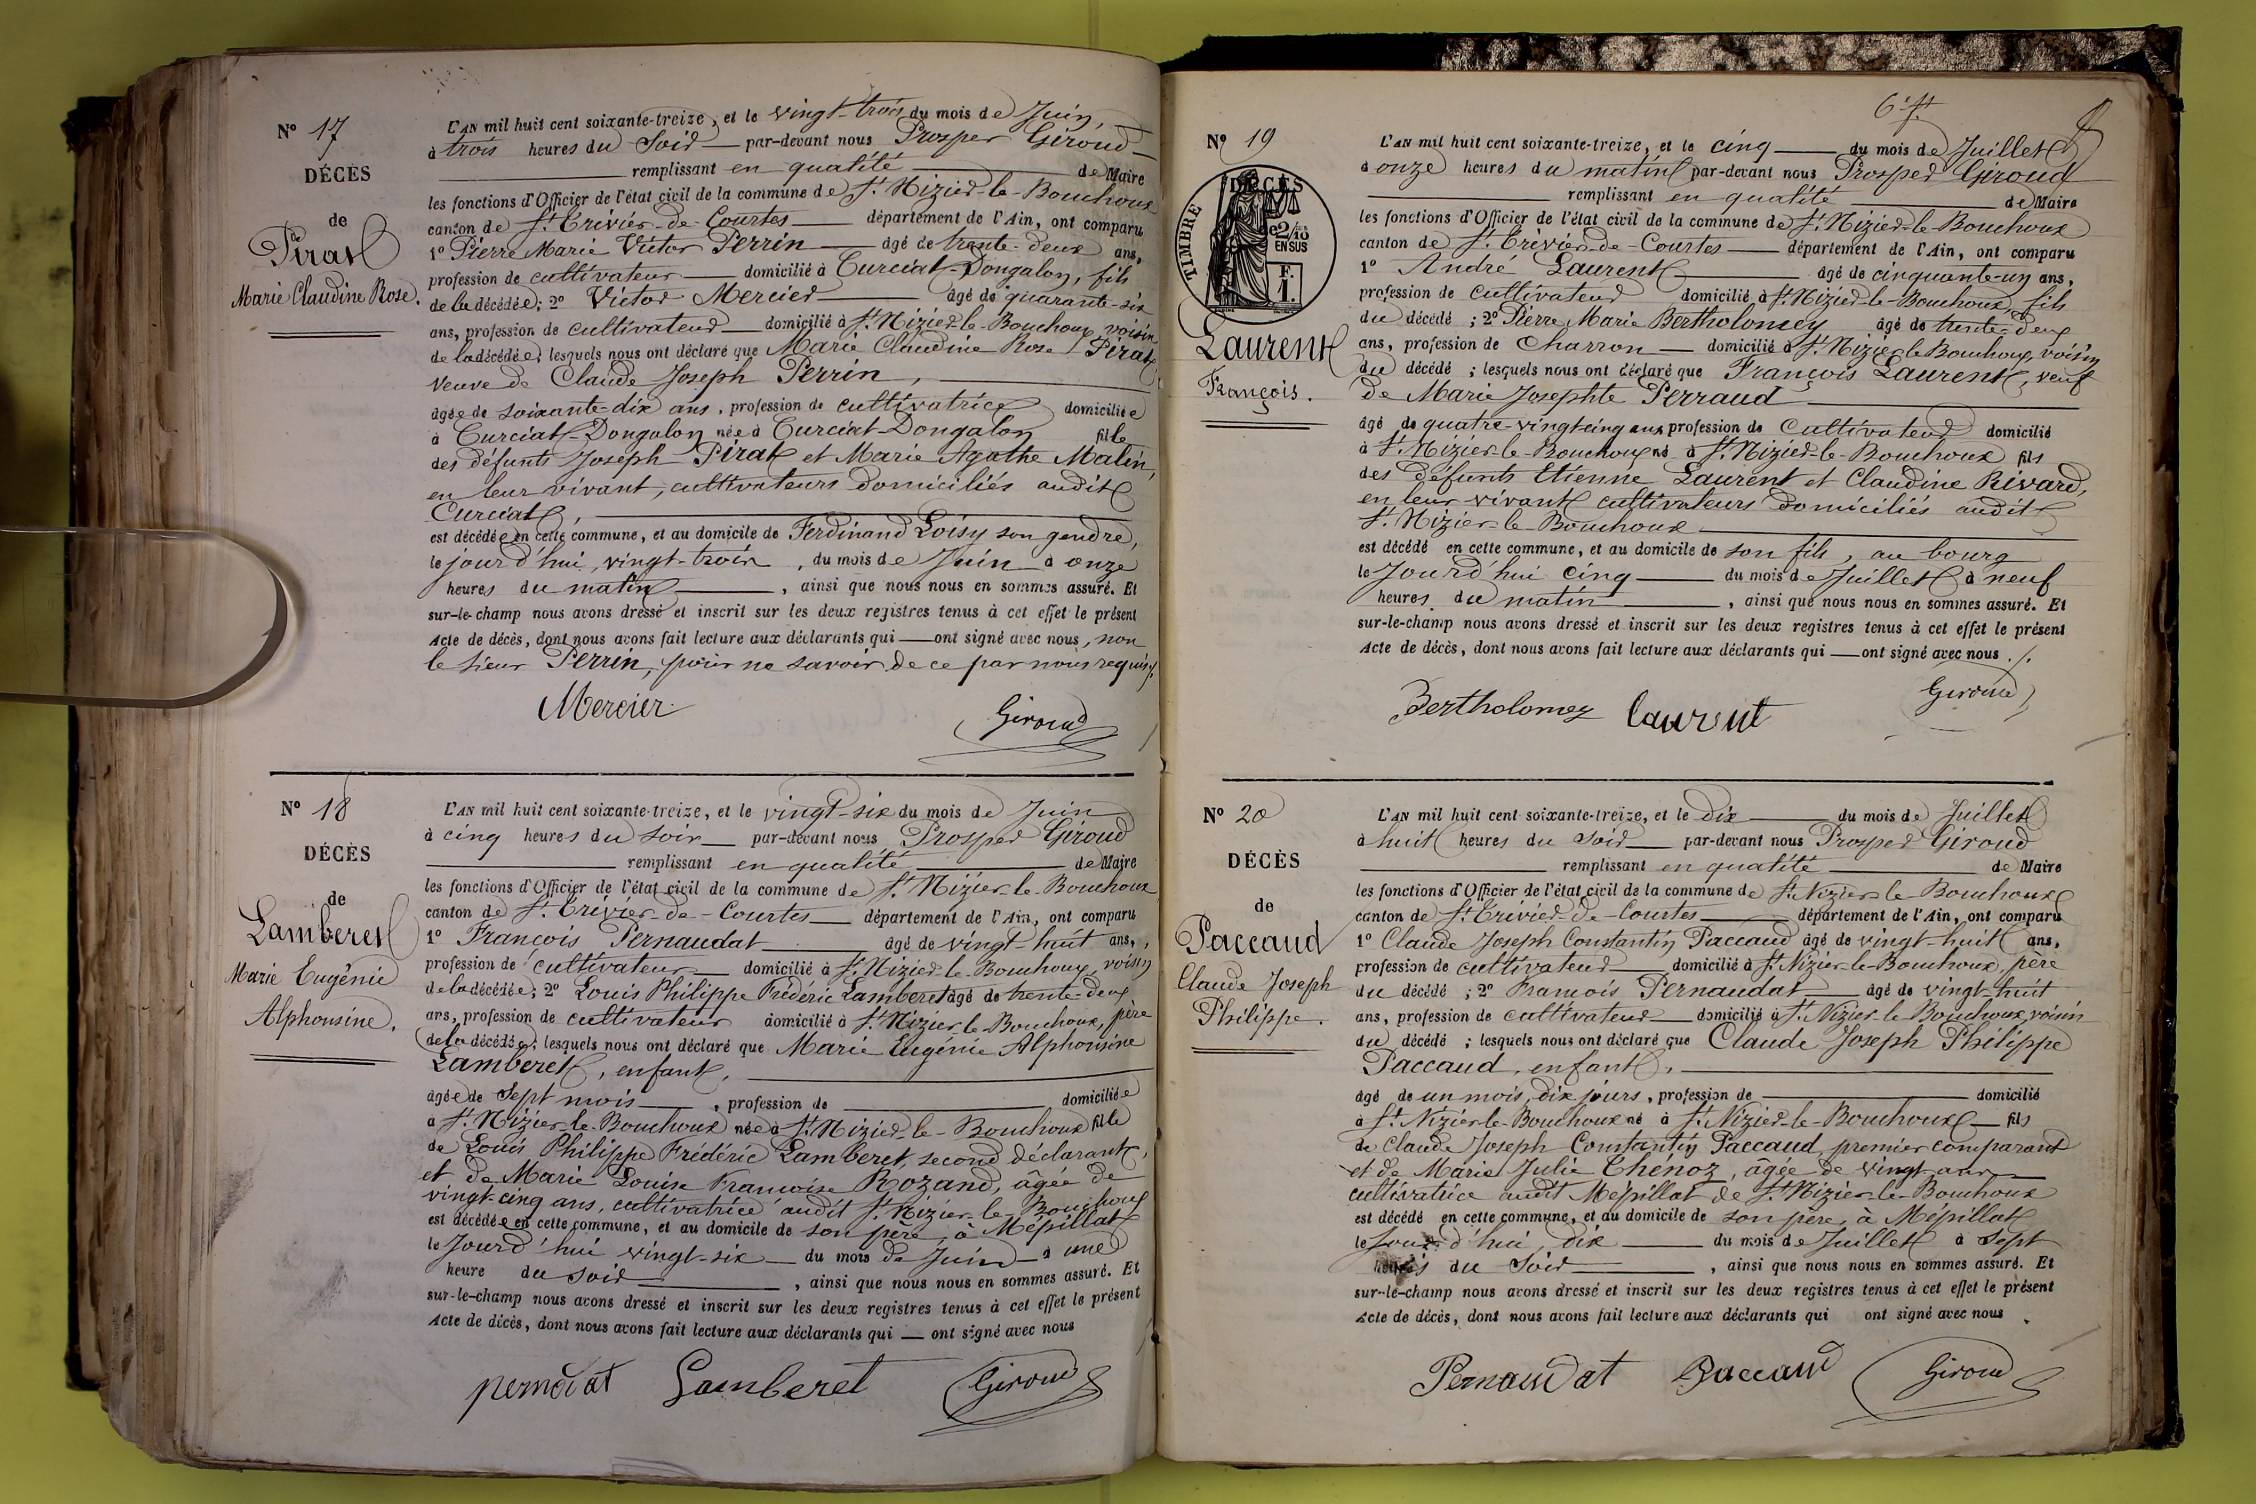 Nº 17
DÉCÈS
de
Pirat
Marie Claudine Rose.
L'AN mil huit cent soixante-treize, et le vingt-trois du mois de Juin,
à trois heures du Soir par-devant nous Prosper Giroud
remplissant en qualité de Maire
les fonctions d'Officier de l'état civil de la commune de St Nizier-le-Bouchoux
canton de St Trivier-de-Courtes département de l'Ain, ont comparu
1º Pierre Marie Victor Perrin âgé de trente-deux ans,
profession de cultivateur domicilié à Curciat-Dongalon, fils
de la décédée; 2º Victor Mercier âgé de quarante-six
ans, profession de cultivateur domicilié à St Nizier-le-Bouchoux, voisin
de la décédée; lesquels nous ont déclaré que Marie Claudine Rose Pirat
veuve de Claude Joseph Perrin,
âgée de soixante-dix ans, profession de cultivatrice domiciliée
à Curciat-Dongalon née à Curciat-Dongalon fille
des défunts Joseph Pirat et Marie Agathe Malin,
en leur vivant, cultivateurs domiciliés audit
Curciat,
est décédée en cette commune, et au domicile de Ferdinand Loisy son gendre,
le jourd'hui, vingt-trois, du mois de Juin à onze
heures du matin, ainsi que nous nous en sommes assuré. Et
sur-le-champ nous avons dressé et inscrit sur les deux registres tenus à cet effet le présent
Acte de décès, dont nous avons fait lecture aux déclarants qui ont signé avec nous, non
le sieur Perrin, pour ne savoir de ce par nous requis./.
Mercier Giroud
Nº 18
DÉCÈS
de
Lamberet
Marie Eugénie
Alphonsine.
L'AN mil huit cent soixante-treize, et le vingt-six du mois de Juin
à cinq heures du soir par-devant nous Prosper Giroud
remplissant en qualité de Maire
les fonctions d'Officier de l'état civil de la commune de St Nizier-le-Bouchoux
canton de St Trivier-de-Courtes département de l'Ain, ont comparu
1º François Pernaudat âgé de vingt-huit ans,
profession de cultivateur domicilié à St Nizier-le-Bouchoux, voisin
de la décédée; 2º Louis Philippe Frédéric Lamberet âgé de trente-deux
ans, profession de cultivateur domicilié à St Nizier-le-Bouchoux, père
de la décédée; lesquels nous ont déclaré que Marie Eugénie Alphonsine
Lamberet, enfant,
âgée de Sept mois, profession de domiciliée
à St Nizier-le-Bouchoux née à St Nizier-le-Bouchoux fille
de Louis Philippe Frédéric Lamberet, second déclarant,
et de Marie Louise Françoise Rozand, âgée de
vingt-cinq ans, cultivatrice audit St Nizier-le-Bouchoux
est décédée en cette commune, et au domicile de son père, à Mépillat
le Jourd'hui vingt-six du mois de Juin à une
heure du soir, ainsi que nous nous en sommes assuré. Et
sur-le-champ nous avons dressé et inscrit sur les deux registres tenus à cet effet le présent
Acte de décès, dont nous avons fait lecture aux déclarants qui ont signé avec nous
Lamberet Giroud
Nº 19
DÉCÈS
TIMBRE
2/10
EN SUS
F.
1.
Laurent
François.
L'AN mil huit cent soixante-treize, et le cinq du mois de Juillet
à onze heures du matin par-devant nous Prosper Giroud
remplissant en qualité de Maire
les fonctions d'Officier de l'état civil de la commune de St Nizier-le-Bouchoux
canton de St Trivier-de-Courtes département de l'Ain, ont comparu
1º André Laurent âgé de cinquante-un ans,
profession de cultivateur domicilié à St Nizier-le-Bouchoux, fils
du décédé; 2º Pierre Marie Bertholomey âgé de trente-deux
ans, profession de Charron domicilié à St Nizier-le-Bouchoux, voisin
du décédé; lesquels nous ont déclaré que François Laurent, veuf
de Marie Josephte Perraud
âgé de quatre-vingt-cinq ans profession de Cultivateur domicilié
à St Nizier-le-Bouchoux né à St Nizier-le-Bouchoux fils
des défunts Etienne Laurent et Claudine Rivard,
en leur vivant cultivateurs domiciliés audit
St Nizier-le-Bouchoux
est décédé en cette commune, et au domicile de son fils, au bourg
le Jourd'hui cinq du mois de Juillet à neuf
heures du matin, ainsi que nous nous en sommes assuré. Et
sur-le-champ nous avons dressé et inscrit sur les deux registres tenus à cet effet le présent
Acte de décès, dont nous avons fait lecture aux déclarants qui ont signé avec nous./.
Bertholomey Laurent Giroud
Nº 20
DÉCÈS
de
Paccaud
Claude Joseph
Philippe.
L'AN mil huit cent soixante-treize, et le dix du mois de Juillet
à huit heures du Soir par-devant nous Prosper Giroud
remplissant en qualité de Maire
les fonctions d'Officier de l'état civil de la commune de St Nizier-le-Bouchoux
canton de St Trivier-de-Courtes département de l'Ain, ont comparu
1º Claude Joseph Constantin Paccaud âgé de vingt-huit ans,
profession de cultivateur domicilié à St Nizier-le-Bouchoux, père
du décédé; 2º François Pernaudat âgé de vingt-huit
ans, profession de cultivateur domicilié à St Nizier-le-Bouchoux, voisin
du décédé; lesquels nous ont déclaré que Claude Joseph Philippe
Paccaud, enfant,
âgé de un mois, dix jours, profession de domicilié
à St Nizier-le-Bouchoux né à St Nizier-le-Bouchoux fils
de Claude Joseph Constantin Paccaud premier comparant
et de Marie Julie Thenoz, âgée de vingt ans
cultivatrice audit Mépillat de St Nizier-le-Bouchoux
est décédé en cette commune, et au domicile de son père, à Mépillat
le Jour d'hui dix du mois de Juillet à Sept
heures du Soir, ainsi que nous nous en sommes assuré. Et
sur-le-champ nous avons dressé et inscrit sur les deux registres tenus à cet effet le présent
Acte de décès, dont nous avons fait lecture aux déclarants qui ont signé avec nous.
Pernaudat Paccaud Giroud